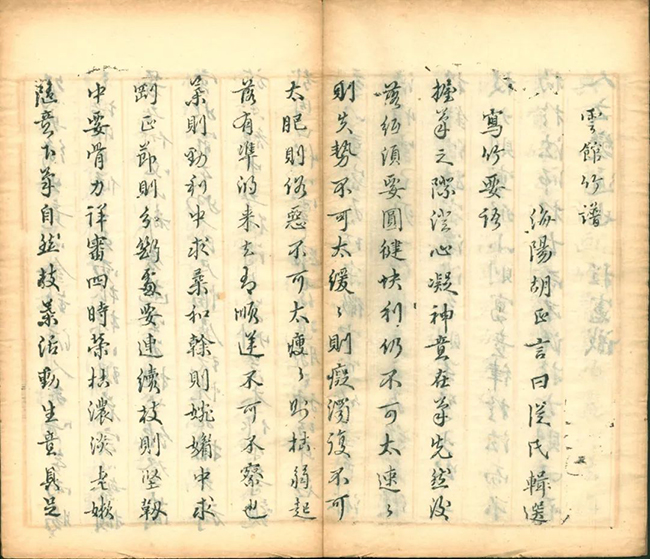 雲館竹譜
海陽胡正言曰從氏輯選
寫竹要語
握筆之際澄心凝神意在筆先然後
落紙須要圓健快利仍不可太速〻
則失勢不可太緩〻則癡濁復不可
太肥則俗惡不可太瘦〻則枯弱起
落有準的来去有順逆不可不察也
葉則勁利中求柔和榦則婉媚中求
剛正節則分斷處要連續枝則堅靱
中要骨力詳審四時荣枯濃淡老嫩
随意下筆自然枝葉活動生意具足